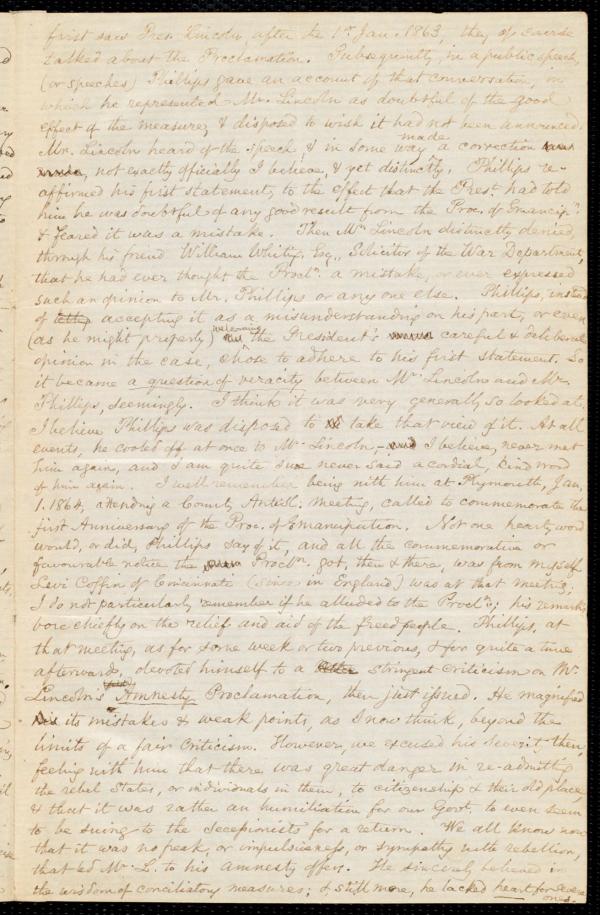 first saw Pres. Lincoln, after the 1st Jan. 1863, they of course
talked about the Proclamation. Subsequently, in a public speech,
(or speeches) Phillips gave an account of that conversation, in
which he represented Mr. Lincoln as doubtful of the good
effect of the measure, & disposed to wish it had not been announced.
Mr. Lincoln heard of the speech, & in some way made a correction
, not exactly officially I believe, & yet distinctly. Phillips re-
affirmed his first statement, to the effect that the Prest. had told
him he was doubtful of any good result from the Proc. of Emancipn.
& feared it was a mistake. Then Mr. Lincoln distinctly denied,
through his friend William Whiting, Esq., Solicitor of the War Department,
that he had ever thought the Procln. a mistake, or ever expressed
such an opinion to Mr. Phillips or any one else. Phillips, instead
of accepting it as a misunderstanding on his part, or even
(as he might properly) welcoming the President's careful & deliberate
opinion in the case, chose to adhere to his first statement. So
it became a question of veracity between Mr. Lincoln and Mr.
Phillips, seemingly. I think it was very generally so looked at.
I believe Phillips was disposed to take that view of it. At all
events, he cooled off at once to Mr. Lincoln,— I believe, never met
him again, and I am quite sure never said a cordial, kind word
of him again. I well remember being with him at Plymouth, Jan.
1. 1864, attending a County Antisl. meeting, called to commemorate the
first Anniversary of the Proc. of Emancipation. Not one hearty word
would, or did, Phillips say of it, and all the commemorative or
favourable notice the Procln. got, then & there, was from myself.
Levi Coffin of Cincinnati (since in England) was at that meeting;
I do not particularly remember if he alluded to the Procln; his remarks
bore chiefly on the relief and aid of the freedpeople. Phillips, at
that meeting, as for some week or two previous, & for quite a time
afterward, devoted himself to a stringent criticism on Mr.
Lincoln's Amnesty Proclamation, then just issued. He magnified
its mistakes & weak points, as I now think, beyond the
limits of a fair criticism. However, we excused his severity then,
feeling with him that there was great danger in re-admitting
the rebel States, or individuals in them, to citizenship & their old place,
& that it was rather an humiliation for our Govt. to even seem
to be suing to the secessionists for a return. We all know now
that it was no freak, or impulsiveness, or sympathy with rebellion,
that led Mr. L. to his amnesty offers. He sincerely believed in
the wisdom of conciliatory measures; & still more, he lacked heart for severe
ones.